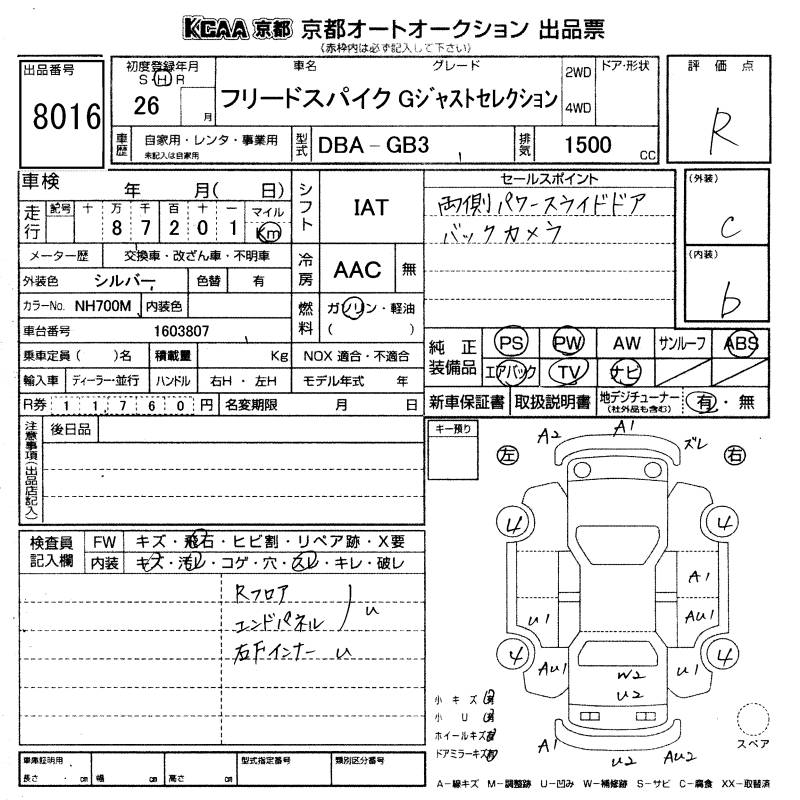 KCAA 京都 京都オートオークション 出品票
(赤枠内は必ず記入して下さい)
出品番号
8016
初度登録年月
S H R
26 月
車名 グレード
フリードスパイク Gジャストセレクション
2WD
4WD
ドア・形状
評価点
R
車歴
自家用・レンタ・事業用
未記入は自家用
型式
DBA-GB3
排気
1500 CC
車検 年 月( 日)
走行
記号 十 万 千 百 十 一 マイル
8 7 2 0 1 Km
メーター歴 交換車・改ざん車・不明車
外装色 シルバー 色替 有
カラーNo. NH700M 内装色
車台番号 1603807
乗車定員( )名 積載量 Kg
輸入車 ディーラー・並行 ハンドル 右H・左H
R券 1 1, 7 6 0 円 名変期限 月 日
シフト
IAT
冷房
AAC 無
燃料
ガソリン・軽油
( )
NOX 適合・不適合
モデル年式 年
セールスポイント
両側パワースライドドア
バックカメラ
(外装)
C
(内装)
b
純正装備品
PS PW AW サンルーフ ABS
エアバック TV ナビ
新車保証書 取扱説明書 地デジチューナー
(社外品も含む)
有・無
注意事項(出品店記入)
後日品
キー預り
検査員記入欄
FW キズ・飛石・ヒビ割・リペア跡・X要
内装 キズ・汚レ・コゲ・穴・スレ・キレ・破レ
Rフロア
エンドパネル
u
右下インナー u
A2 A1 ズレ
左 右
4 4
A1
U1 AU1
4 4
AU1 U1
W2
U2
A1 U2 AU2
小キズ
小U
ホイールキズ
ドアミラーキズ
スペア
車庫証明用
長さ cm 幅 cm 高さ cm
型式指定番号 類別区分番号
A-線キズ M-調整跡 U-凹み W-補修跡 S-サビ C-腐食 XX-取替済